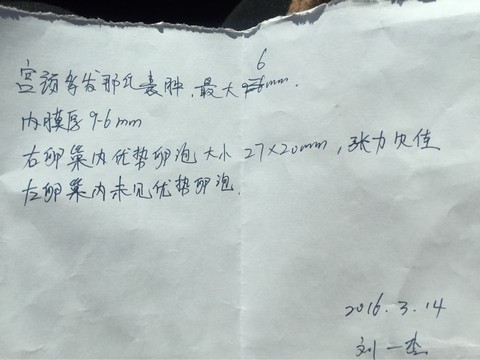 宫颈多发那氏囊肿,最大6mm.
内膜厚9.6mm
右卵巢内优势卵泡大小27×20mm,张力欠佳
左卵巢内未见优势卵泡.
2016.3.14
刘一杰